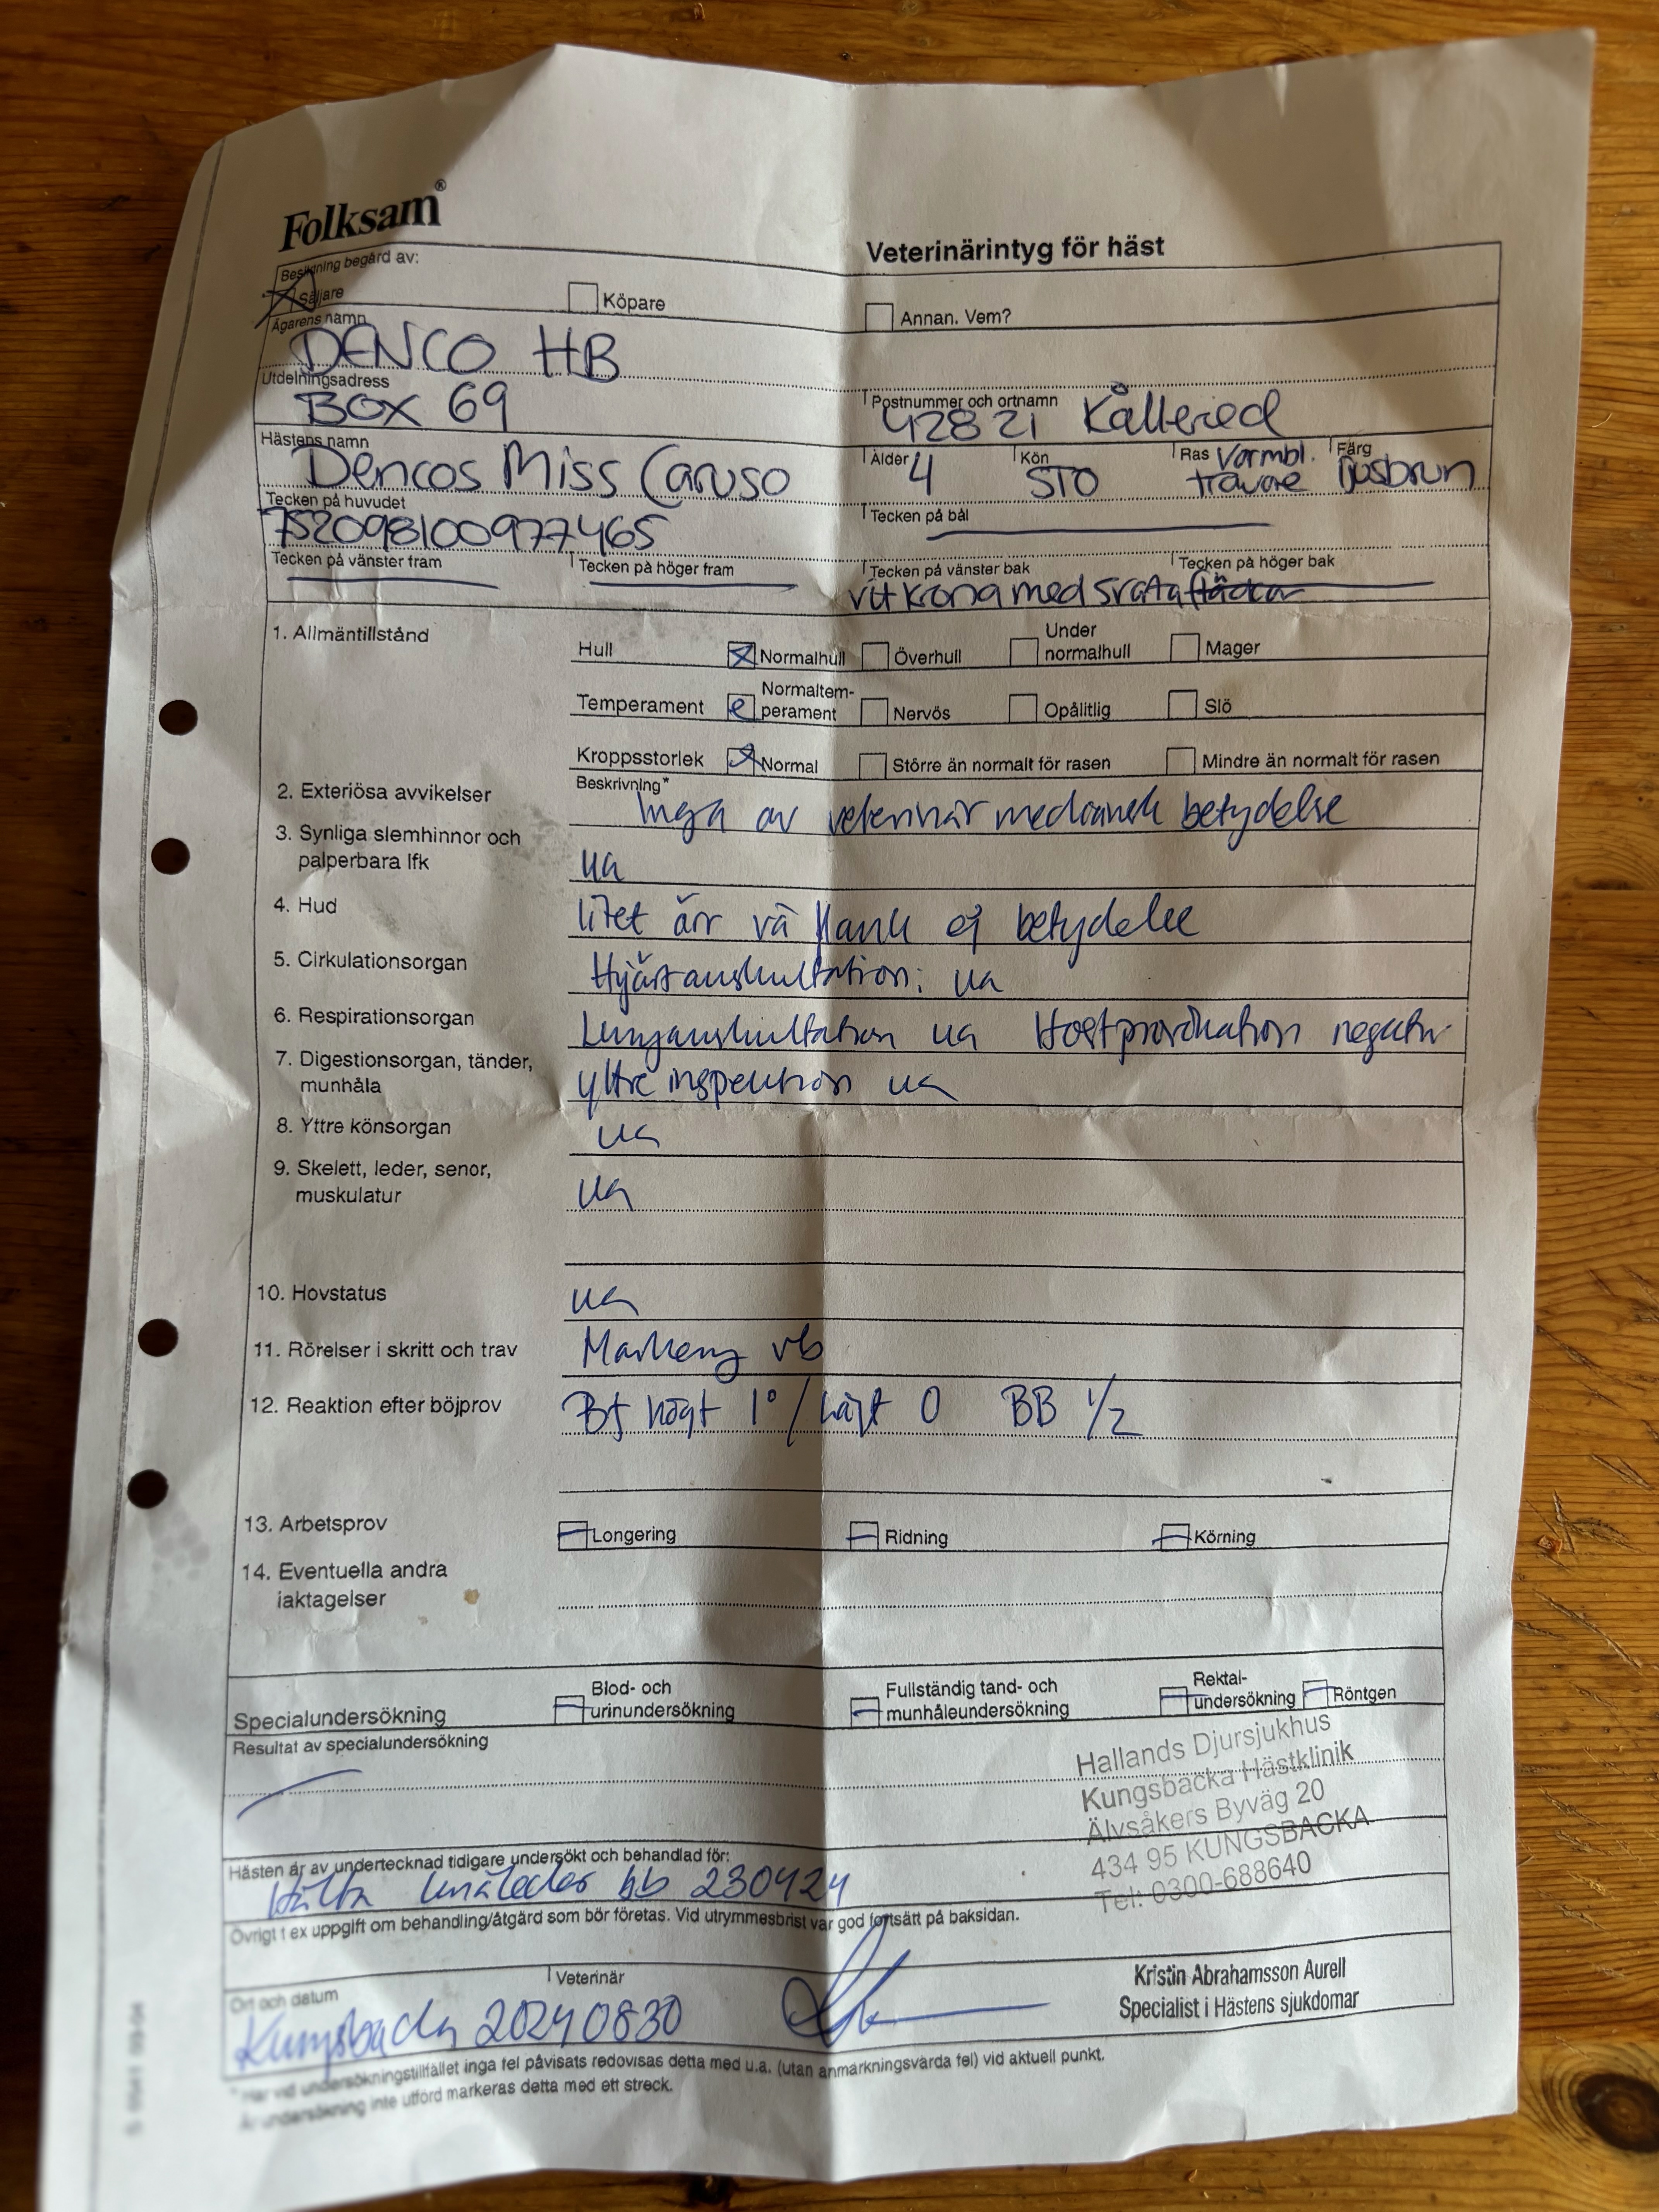 Folksam®
Veterinärintyg för häst
Besiktning begärd av:
Säljare Köpare Annan. Vem?
Ägarens namn
DENCO HB
Utdelningsadress Postnummer och ortnamn
BOX 69 42821 Kållered
Hästens namn Ålder Kön Ras Färg
Dencos Miss Caruso 4 STO Varmbl. travare ljusbrun
Tecken på huvudet Tecken på bål
752098100977465
Tecken på vänster fram Tecken på höger fram Tecken på vänster bak Tecken på höger bak
vit krona med svarta fläckar
1. Allmäntillstånd
Hull Normalhull Överhull Under normalhull Mager
Temperament Normaltem-perament Nervös Opålitlig Slö
Kroppsstorlek Normal Större än normalt för rasen Mindre än normalt för rasen
Beskrivning*
2. Exteriösa avvikelser Inga av veterinärmedicinsk betydelse
3. Synliga slemhinnor och
palperbara lfk ua
4. Hud litet ärr vä flank ej betydelse
5. Cirkulationsorgan Hjärtauskultation: ua
6. Respirationsorgan Lungauskultation ua Hostprovokation negativ
7. Digestionsorgan, tänder,
munhåla yttre inspektion ua
8. Yttre könsorgan ua
9. Skelett, leder, senor,
muskulatur ua
10. Hovstatus ua
11. Rörelser i skritt och trav Markering vb
12. Reaktion efter böjprov Bf högt 1°/lågt 0 BB 1/2
13. Arbetsprov Longering Ridning Körning
14. Eventuella andra
iaktagelser
Specialundersökning Blod- och urinundersökning Fullständig tand- och munhåleundersökning Rektal-undersökning Röntgen
Resultat av specialundersökning
Hallands Djursjukhus
Kungsbacka Hästklinik
Älvsåkers Byväg 20
434 95 KUNGSBACKA
Tel: 0300-688640
Hästen är av undertecknad tidigare undersökt och behandlad för:
Hälta knäleder bb 230424
Övrigt t ex uppgift om behandling/åtgärd som bör företas. Vid utrymmesbrist var god fortsätt på baksidan.
Ort och datum Veterinär
Kungsbacka 20240830
Kristin Abrahamsson Aurell
Specialist i Hästens sjukdomar
* Har vid undersökningstillfället inga fel påvisats redovisas detta med u.a. (utan anmärkningsvärda fel) vid aktuell punkt.
Är undersökning inte utförd markeras detta med ett streck.